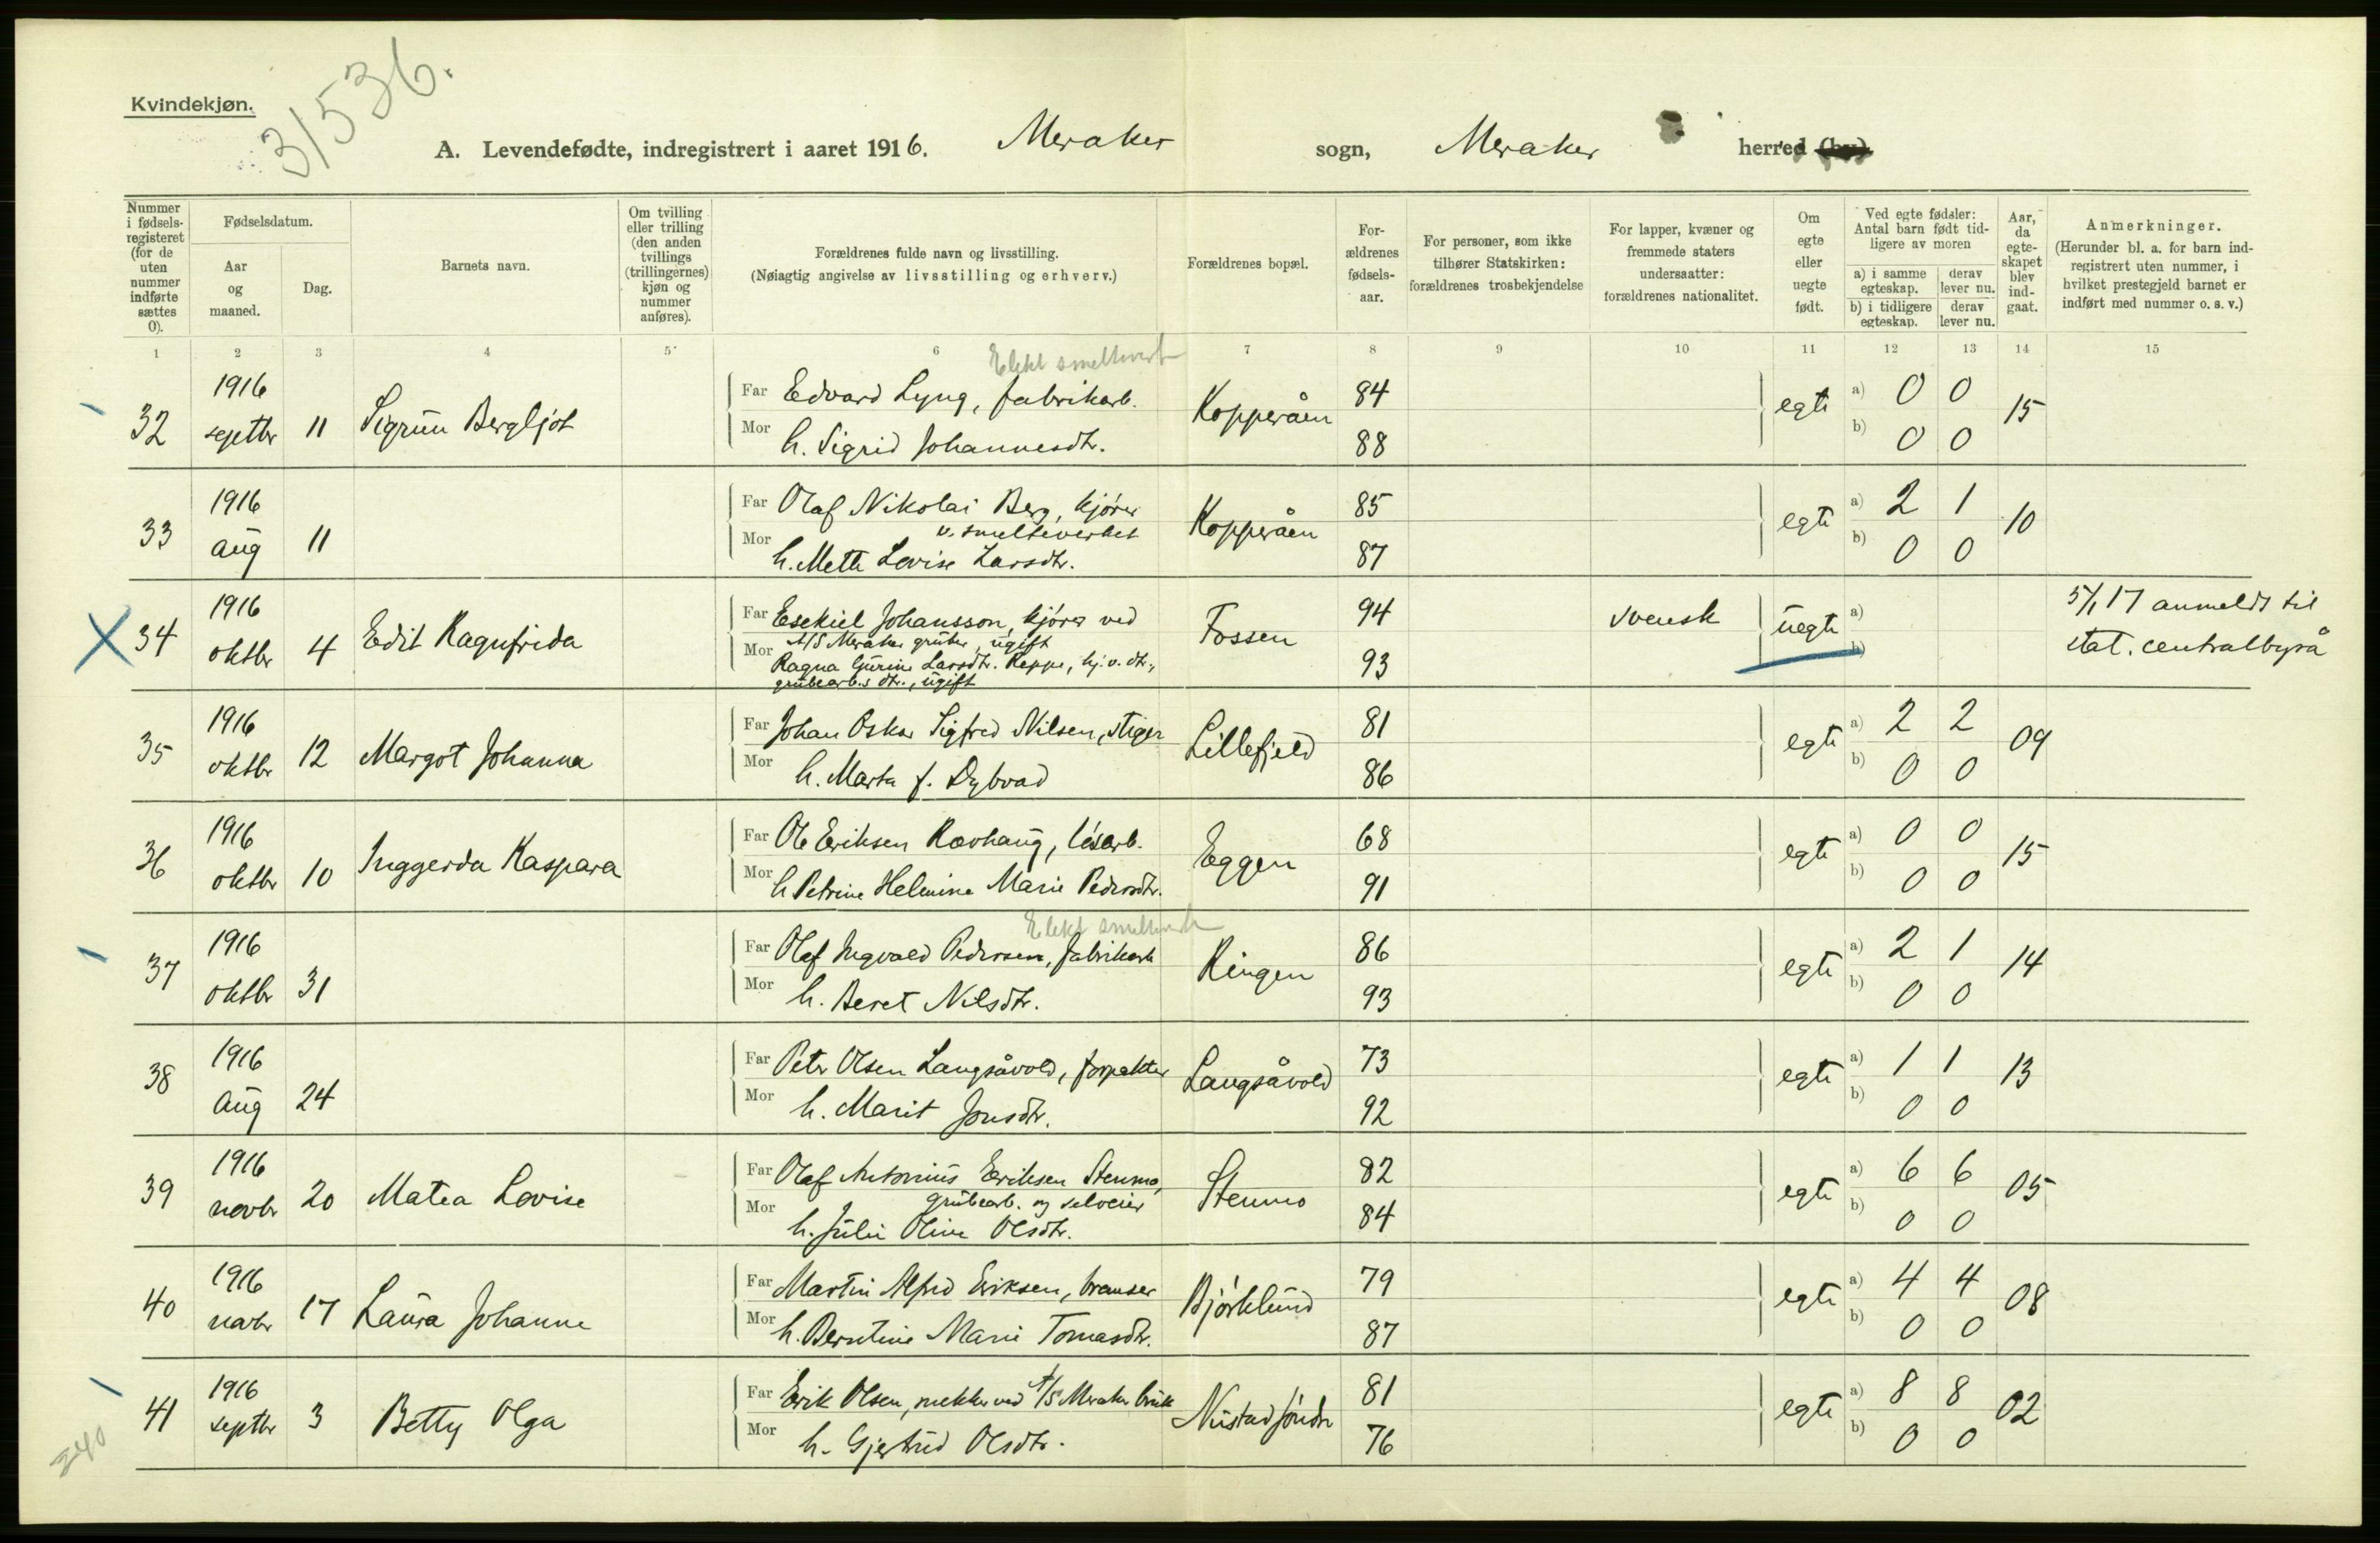 Kvindekjøn.
31536.
A. Levendefødte, indregistrert i aaret 1916. Meraker sogn, Meraker herred (by).
Nummer i fødselsregisteret (for de uten nummer indførte sættes 0).
Fødselsdatum.
Aar og maaned.
Dag.
Barnets navn.
Om tvilling eller trilling (den anden tvillings (trillingernes) kjøn og nummer anføres).
Forældrenes fulde navn og livsstilling.
(Nøiagtig angivelse av livsstilling og erhverv.)
Forældrenes bopæl.
Forældrenes fødselsaar.
For personer, som ikke tilhører Statskirken: forældrenes trosbekjendelse
For lapper, kvæner og fremmede staters undersaatter: forældrenes nationalitet.
Om egte eller uegte født.
Ved egte fødsler: Antal barn født tidligere av moren
a) i samme egteskap. derav lever nu.
b) i tidligere egteskap. derav lever nu.
Aar, da egteskapet blev indgaat.
Anmerkninger.
(Herunder bl. a. for barn indregistrert uten nummer, i hvilket prestegjeld barnet er indført med nummer o. s. v.)
1 2 3 4 5 6 7 8 9 10 11 12 13 14 15
Elekt smelteverk
32 1916 septbr 11 Sigrun Bergljot Far Edvard Lyng, fabrikarb. Kopperåen 84 egte a) 0 0 15
Mor h. Sigrid Johannesdtr. 88 b) 0 0
33 1916 aug 11 Far Olaf Nikolai Berg, kjører v. smelteverket Kopperåen 85 egte a) 2 1 10
Mor h. Mette Lovise Larsdtr. 87 b) 0 0
34 1916 oktbr 4 Edit Ragnfrida Far Esekiel Johansson, kjører ved A/S Meraker gruber, ugift Fossen 94 svensk uegte a) 5/1 17 anmeldt til stat. centralbyrå
Mor Ragna Gurine Larsdtr. Reppe, hj.v. dtr., grubearb.s dtr., ugift 93 b)
35 1916 oktbr 12 Margot Johanna Far Johan Oskar Sigfred Nilsen, stiger Lillefjeld 81 egte a) 2 2 09
Mor h. Marta f. Dybvad 86 b) 0 0
36 1916 oktbr 10 Inggerda Kaspara Far Ole Eriksen Rovhaug, løsarb. Eggen 68 egte a) 0 0 15
Mor h. Petrine Helmine Marie Pedersdtr. 91 b) 0 0
Elekt smelteverk
37 1916 oktbr 31 Far Olaf Ingvald Pedersen, fabrikarb Ringen 86 egte a) 2 1 14
Mor h. Beret Nilsdtr. 93 b) 0 0
38 1916 aug 24 Far Peter Olsen Langsåvold, forpakter Langsåvold 73 egte a) 1 1 13
Mor h. Marit Jonsdtr. 92 b) 0 0
39 1916 novbr 20 Matea Lovise Far Olaf Antonius Eriksen Stenmo, grubearb. og selveier Stenmo 82 egte a) 6 6 05
Mor h. Julie Oline Olsdtr. 84 b) 0 0
40 1916 novbr 17 Laura Johanne Far Martin Alfred Eriksen, bremser Bjørklund 79 egte a) 4 4 08
Mor h. Berntine Marie Tomasdtr. 87 b) 0 0
41 1916 septbr 3 Betty Olga Far Erik Olsen, mekker ved A/S Meraker bruk Nustad søndre 81 egte a) 8 8 02
Mor h. Gjertrud Olsdtr. 76 b) 0 0
340